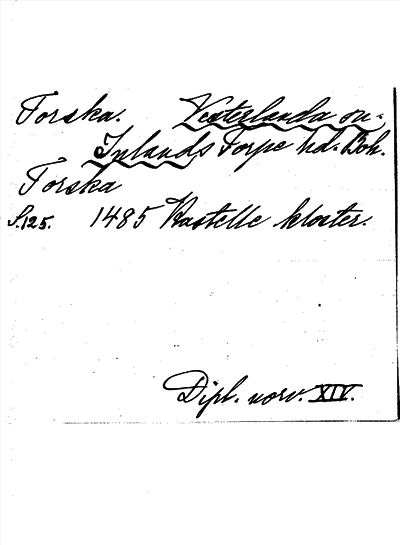 Torska. Vesterlanda sn.
Inlands Torpe hd. Boh.
Torska
S.125. 1485 Kastelle kloster.
Dipl. norv. XIV.